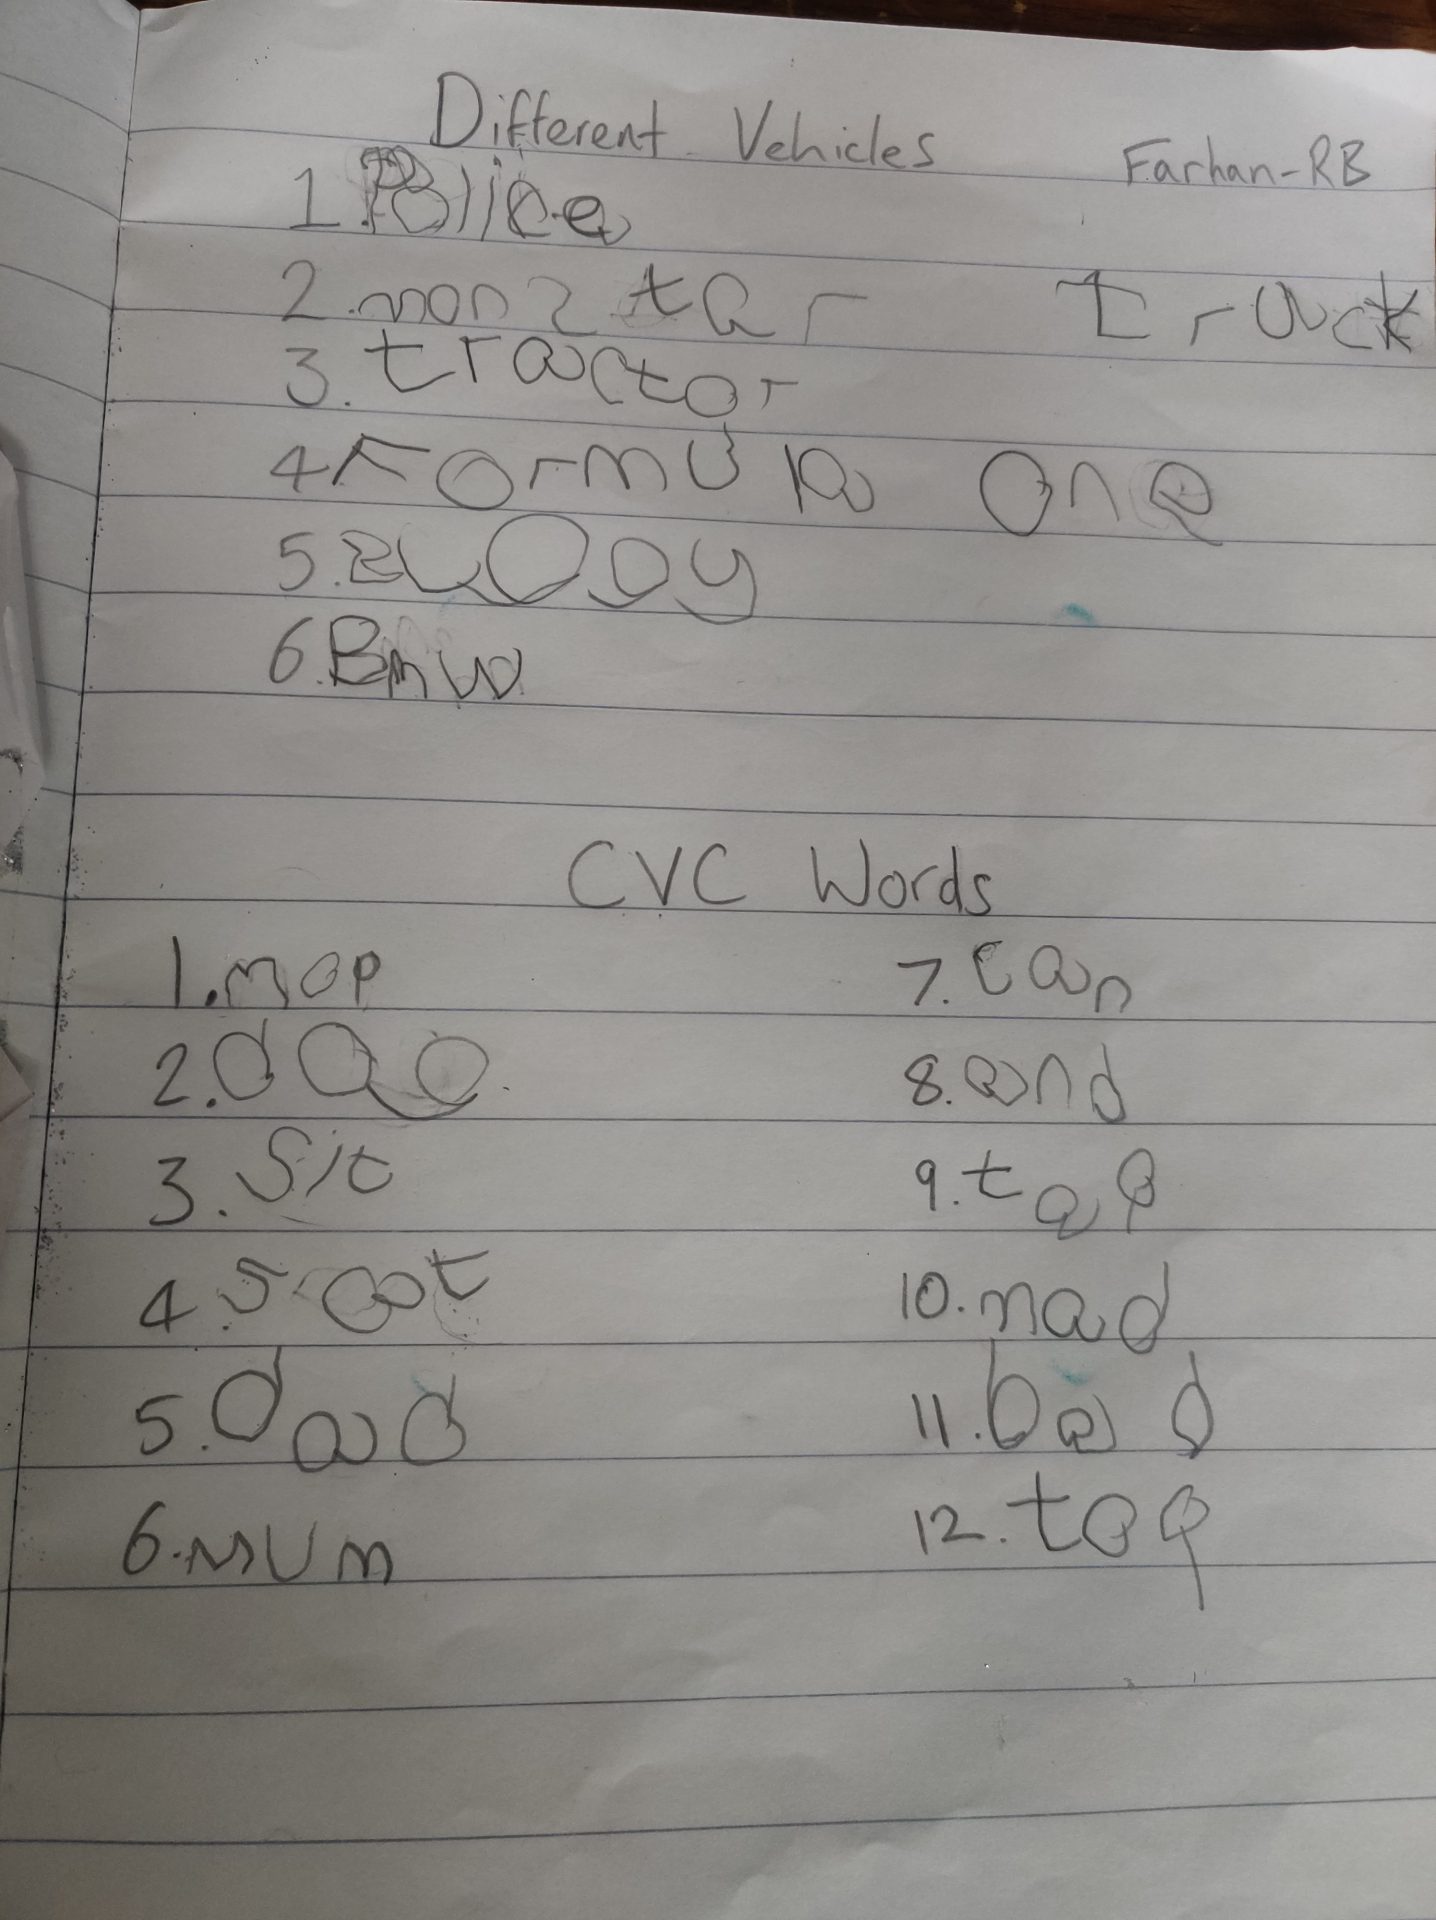 Different Vehicles
Farhan-RB
1. Police
2. monstar truck
3. tractor
4 Formula one
5.
6. Bmw
CVC Words
1. mop
2.
3. Sit
4. sat
5. dad
6. mum
7. can
8. and
9. tap
10. mad
11. bad
12.